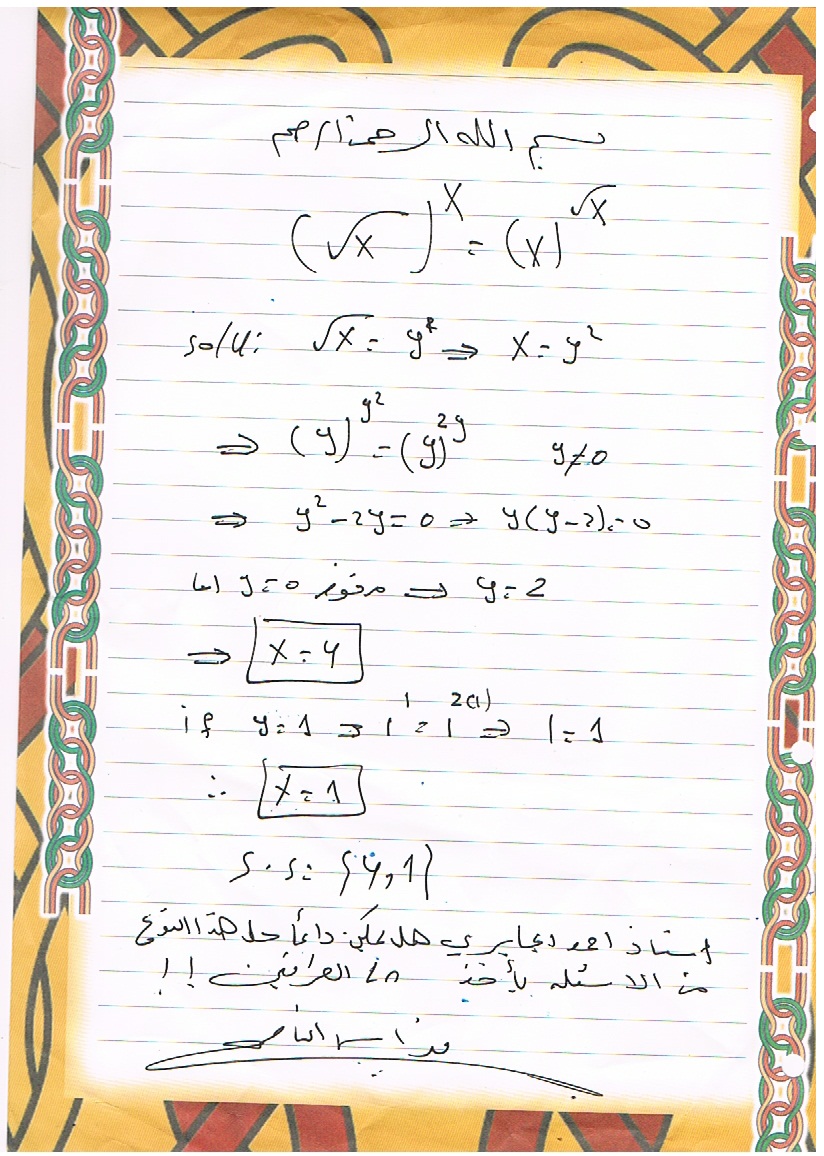 بسم الله الرحمن الرحيم
(√x)^x = (x)^√x
solu: √x = y² ⇒ x = y²
⇒ (y)^y² = (y)^2y y≠0
⇒ y² - 2y = 0 ⇒ y(y-2) = 0
اما y=0 مرفوض ⇒ y = 2
⇒ x = 4
if y = 1 ⇒ 1^1 = 1^2(1) ⇒ 1 = 1
∴ x = 1
S.S = {4,1}
استاذ احمد هل يمكن دائماً حل هذا النوع
من الاسئلة بأخذ Ln الطرفين !!